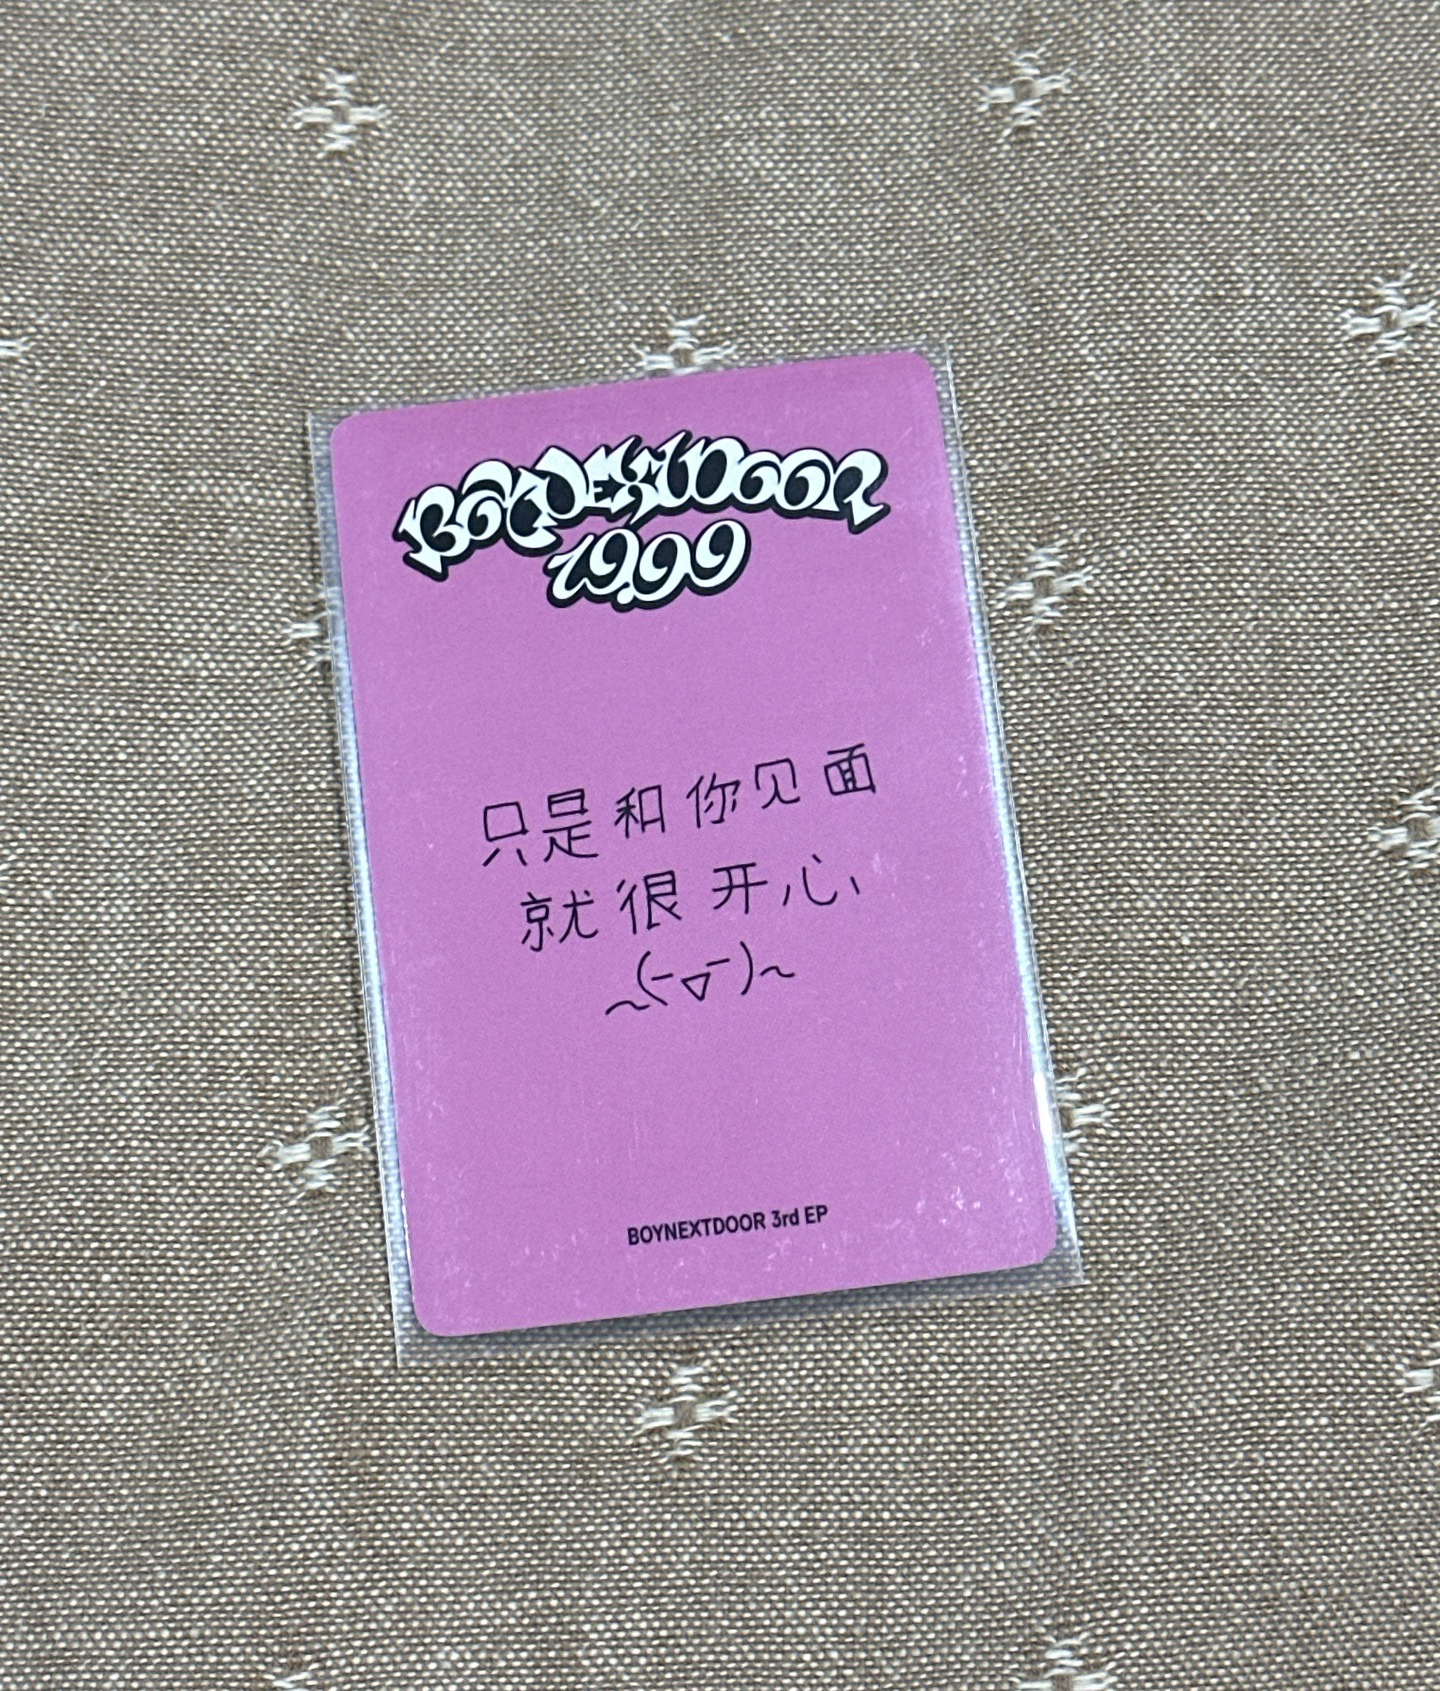 BOYNEXTDOOR
19.99
只是和你见面
就很开心、
~(-▽-)~
BOYNEXTDOOR 3rd EP